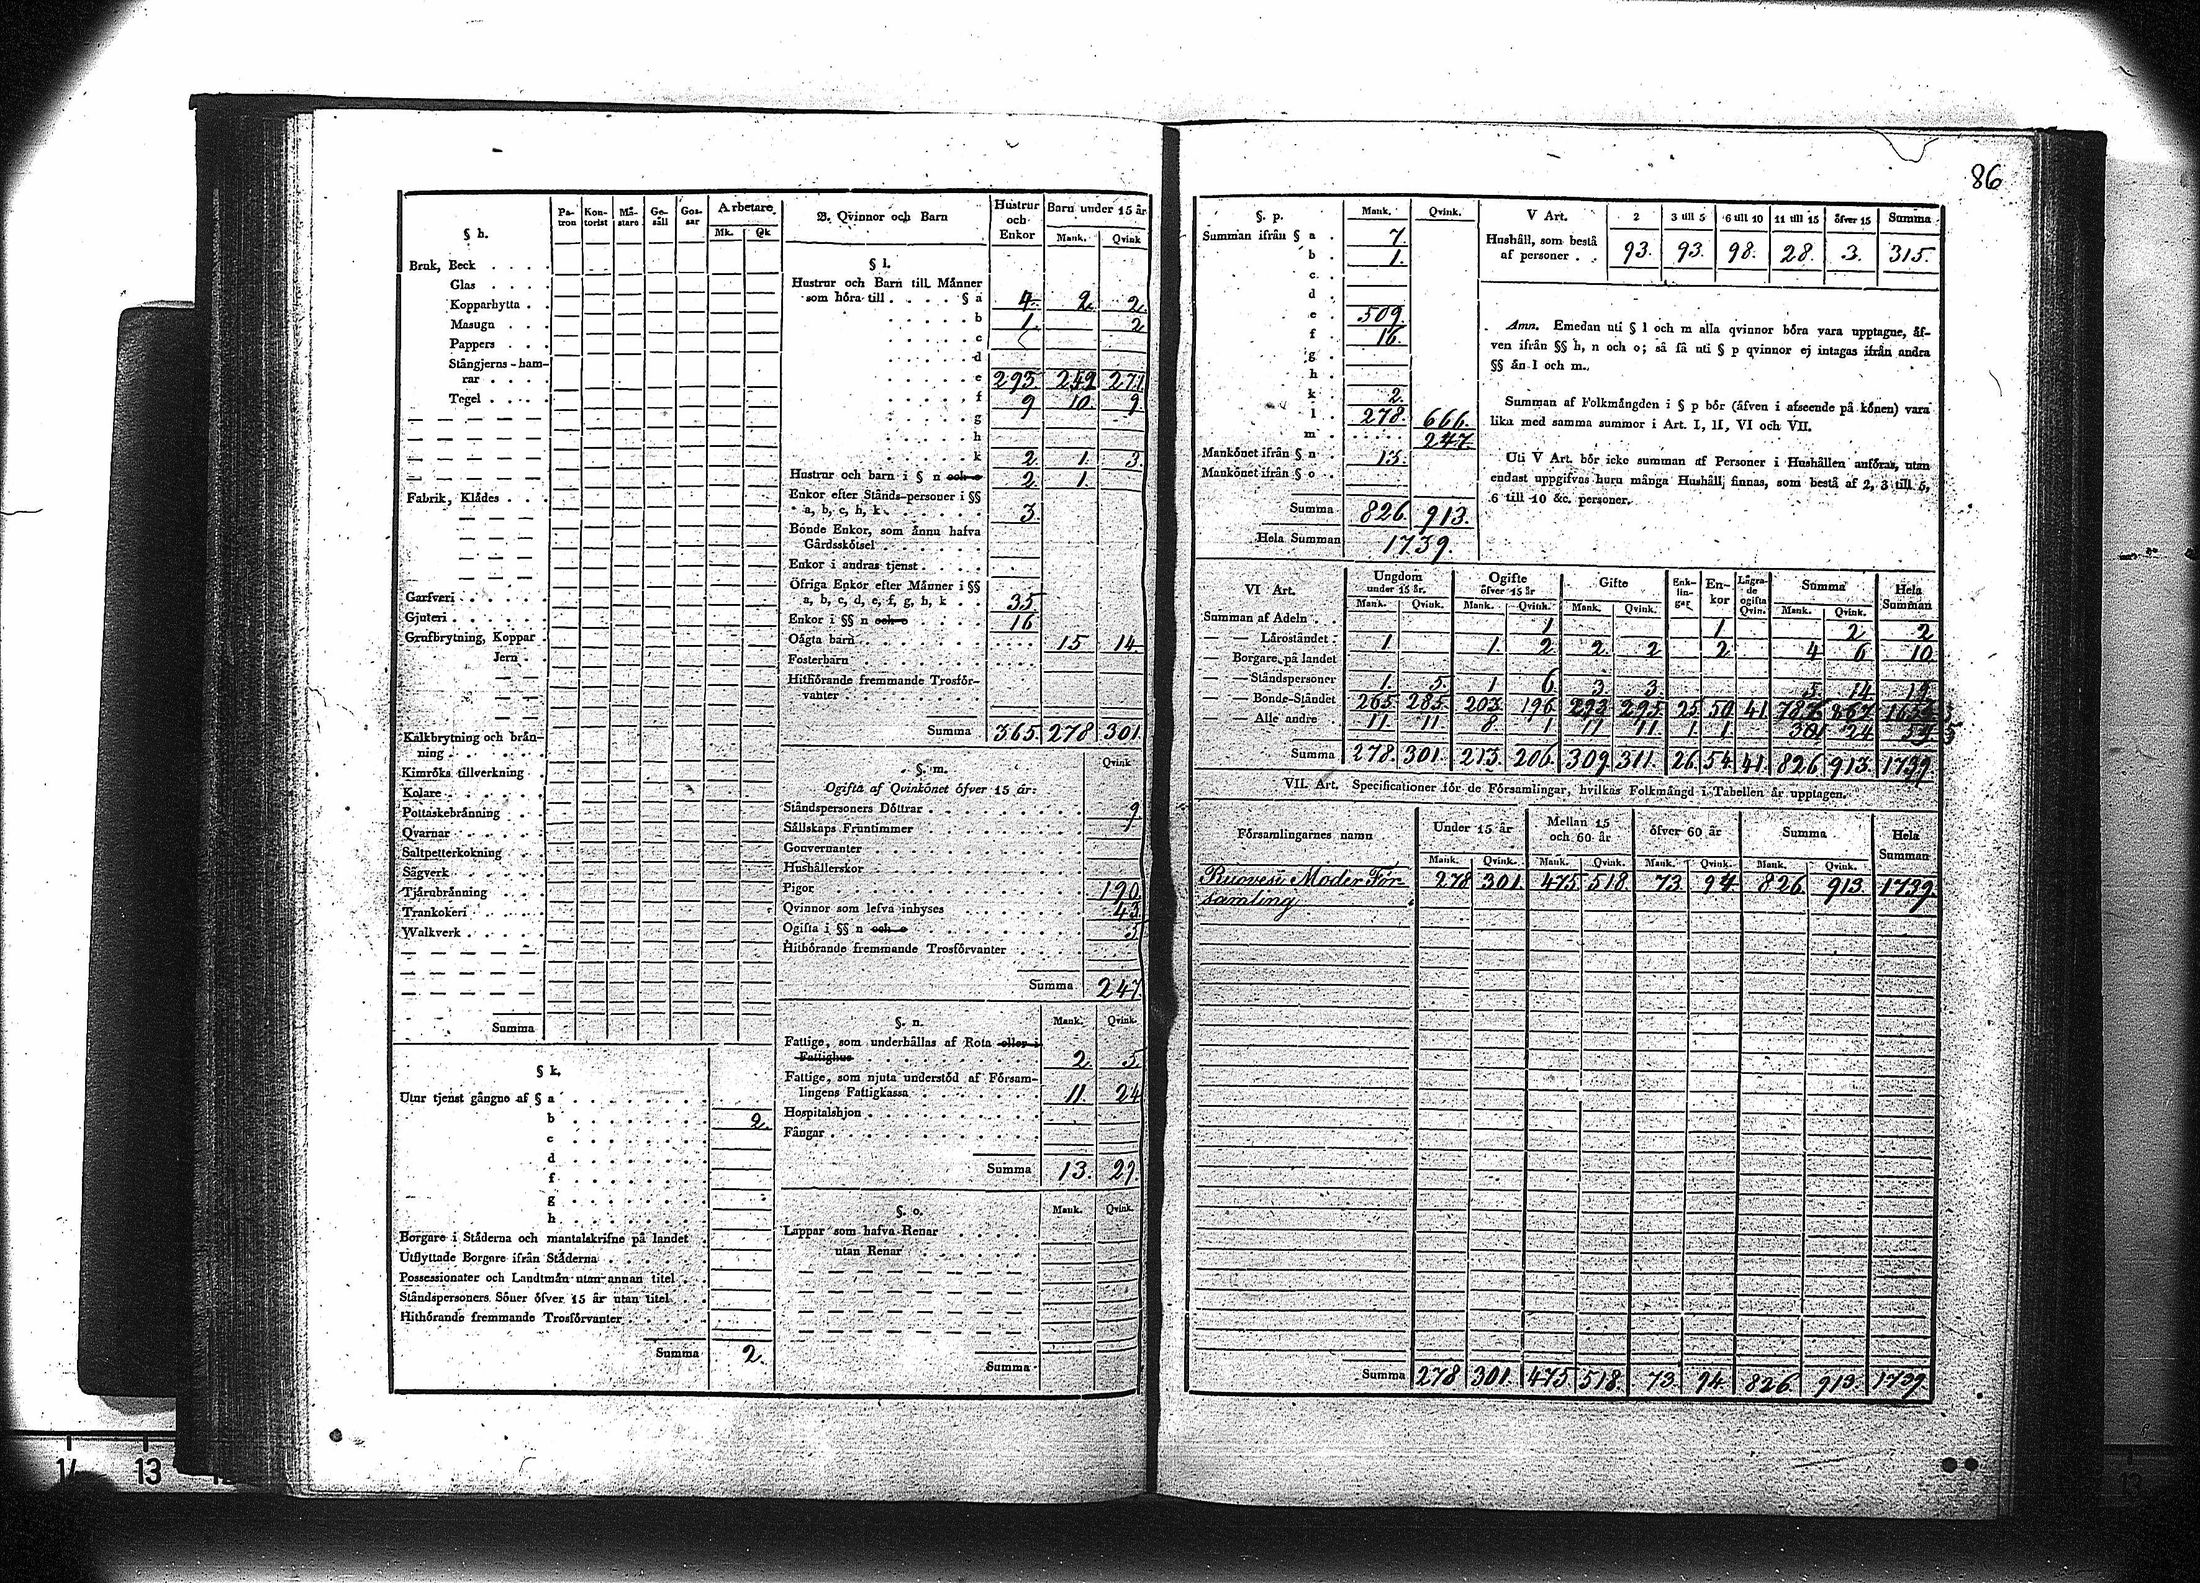 86
§ h.
Pa-tron Kon-torist Må-stare Ge-säll Gos-sar Arbetare
Mk. Qk
Bruk, Beck . . . .
Glas . . . .
Kopparhytta . .
Masugn . . .
Pappers . . .
Stångjerns-ham-
rar . . . .
Tegel . . . .
Fabrik, Klådes . . .
Garfveri . . . . .
Gjuteri . . . . .
Grufbrytning, Koppar .
Jern . .
Kalkbrytning och brån-
ning . . . . .
Kimröks tillverkning .
Kolare . . . . . .
Pottaskebrånning . .
Qvarnar . . . . .
Saltpetterkokning . .
Sågverk . . . . .
Tjårubrånning . . .
Trankokeri . . . .
Walkverk . . . . .
Summa
§ k.
Utur tjenst gångne af § a . . . . . . .
b . . . . . . . 2.
c . . . . . . .
d . . . . . . .
f . . . . . . .
g . . . . . . .
h . . . . . . .
Borgare i Ståderna och mantalskrifne på landet .
Utflyttade Borgare ifrån Ståderna . . . . .
Possessionater och Landtmån utan annan titel . .
Ståndspersoners Söner öfver 15 år utan titel . .
Hithörande fremmande Trosförvanter . . . .
Summa 2.
B. Qvinnor och Barn Hustrur och Enkor Barn under 15 år
Mank. Qvink
§ l.
Hustrur och Barn till Männer
som höra till . . . . . § a 4. 2. 2.
. . . . . b 1. 2
. . . . . c
. . . . . d
. . . . . e 295 249 271
. . . . . f 9 10. 9.
. . . . . g
. . . . . h
. . . . . k 2. 1. 3.
Hustrur och barn i § n och o 2. 1.
Enkor efter Stånds-personer i §§
a, b, c, h, k . . . . . . 3.
Bonde Enkor, som ännu hafva
Gårdsskötsel . . . . . .
Enkor i andras tjenst . . . .
Öfriga Enkor efter Männer i §§
a, b, c, d, e, f, g, h, k . . 35.
Enkor i §§ n och o . . . . . 16
Oågta barn . . . . . . . . 15 14.
Fosterbarn . . . . . . .
Hithörande fremmande Trosför-
vanter . . . . . . .
Summa 365. 278 301.
§. m. Qvink
Ogifta af Qvinkönet öfver 15 år:
Ståndspersoners Döttrar . . . . . . . . 9
Sållskaps Fruntimmer . . . . . . . .
Gouvernanter . . . . . . . . . .
Hushållerskor . . . . . . . . . .
Pigor . . . . . . . . . . . . 190
Qvinnor som lefva inhyses . . . . . . . 43
Ogifta i §§ n och o . . . . . . . . 5
Hithörande fremmande Trosförvanter . . . .
Summa 247
§. n. Mank. Qvink.
Fattige, som underhållas af Rota eller i
Fattighus . . . . . . . . . 2. 5.
Fattige, som njuta understöd af Försam-
lingens Fattigkassa . . . . . . 11 24
Hospitalshjon . . . . . . . . . .
Fångar . . . . . . . . . . . .
Summa 13. 29.
§. o. Mank. Qvink.
Lappar som hafva Renar . . . . .
utan Renar . . . . .
Summa
§. p. Mank. Qvink.
Summan ifrån § a . 7.
b . 1.
c .
d .
e . 509.
f . 16.
g .
h .
k . 2.
l . 278. 666.
m . 247.
Mankönet ifrån § n . 13.
Mankönet ifrån § o .
Summa 826. 913.
Hela Summan 1739.
V Art. 2 3 till 5 6 till 10 11 till 15 öfver 15 Summa
Hushåll, som bestå
af personer . . 93. 93. 98. 28. 3. 315.
Anm. Emedan uti § l och m alla qvinnor böra vara upptagne, äf-
ven ifrån §§ h, n och o; så få uti § p qvinnor ej intagas ifrån andra
§§ än l och m.
Summan af Folkmångden i § p bör (äfven i afseende på könen) vara
lika med samma summor i Art. I, II, VI och VII.
Uti V Art. bör icke summan af Personer i Hushållen anföras, utan
endast uppgifvas huru många Hushåll finnas, som bestå af 2, 3 till 5,
6 till 10 &c. personer.
VI Art. Ungdom under 15 år. Ogifte öfver 15 år Gifte Enk-lin-gar En-kor Lägra-de ogifta Qvin. Summa Hela Summan
Mank. Qvink. Mank. Qvink. Mank. Qvink. Mank. Qvink.
Summan af Adeln . . 1 1 2 2
— — Läroståndet . 1 1. 2 2. 2 2 4 6 10
— — Borgare på landet
— — Ståndspersoner 1. 5. 1 6. 3 3 5. 14 19
— — Bonde-Ståndet 265 285 203 196 293 295 25 50 41
— — Alle andre . 11 11 8. 1 11 11 1. 1 24
Summa 278. 301. 213. 206. 309 311. 26. 54. 41. 826 913. 1739.
VII. Art. Specificationer för de Församlingar, hvilkas Folkmångd i Tabellen är upptagen.
Församlingarnes namn Under 15 år Mellan 15 och 60 år öfver 60 år Summa Hela Summan
Mank. Qvink. Mank. Qvink. Mank. Qvink. Mank. Qvink.
Ruovesi Moder För- 278 301. 475 518. 73. 94 826. 913. 1739.
samling
Summa 278 301. 475 518. 73. 94. 826. 913. 1739.
14 13
13